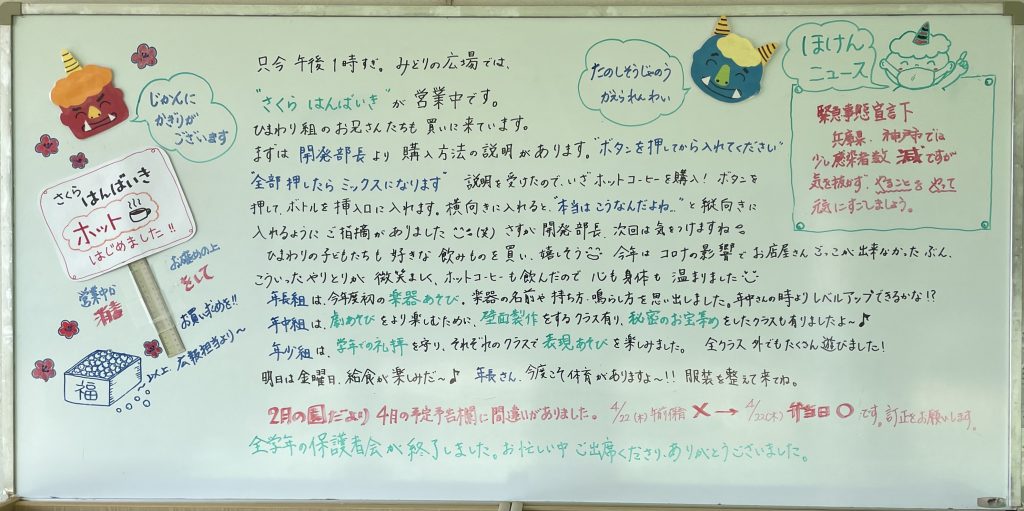 じかんに
かぎりが
ございます
さくら
はんばいき
ホット
はじめました!!
お確めの上
営業中か
お買い求めを!!
以上、広報担当より〜
福
只今 午後1時すぎ。みどりの広場では、
"さくら はんばいき"が営業中です。
ひまわり組のお兄さんたちも買いに来ています。
まずは 開発部長より 購入方法の説明があります。"ボタンを押してから入れてください"
"全部押したら ミックスになります" 説明を受けたので、いざホットコーヒーを購入! ボタンを
押して、ボトルを挿入口に入れます。横向きに入れると、"本当はこうなんだよね…"と縦向きに
入れるようにご指摘がありました(笑) さすが開発部長、次回は気をつけますね
ひまわりの子どもたちも 好きな飲みものを買い、嬉しそう 今年はコロナの影響でお店屋さんごっこが出来なかったぶん、
こういったやりとりが 微笑ましく、ホットコーヒーも飲んだので 心も身体も 温まりました
年長組は、今年度初の楽器あそび、楽器の名前や持ち方、鳴らし方を思い出しました。年中さんの時よりレベルアップできるかな!?
年中組は、劇あそびをより楽しむために、壁面製作をするクラス有り、秘密のお宝集めをしたクラスも有りましたよ〜♪
年少組は、学年での礼拝を守り、それぞれのクラスで表現あそびを楽しみました。 全クラス外でもたくさん遊びました!
明日は金曜日、給食が楽しみだ〜♪ 年長さん、今度こそ体育がありますよ〜!! 服装を整えて来てね。
2月の園だより 4月の予定予告欄に間違いがありました。4/22(木)午前保育 ✕ → 4/22(木)弁当日 ○ です。訂正をお願いします。
全学年の保護者会が終了しました。お忙しい中ご出席くださり、ありがとうございました。
たのしそうじゃのう
かえられんわい
ほけん
ニュース
緊急事態宣言下
兵庫県、神戸市では
少し感染者数 減ですが
気を抜かず、やることをやって
元気にすごしましょう。